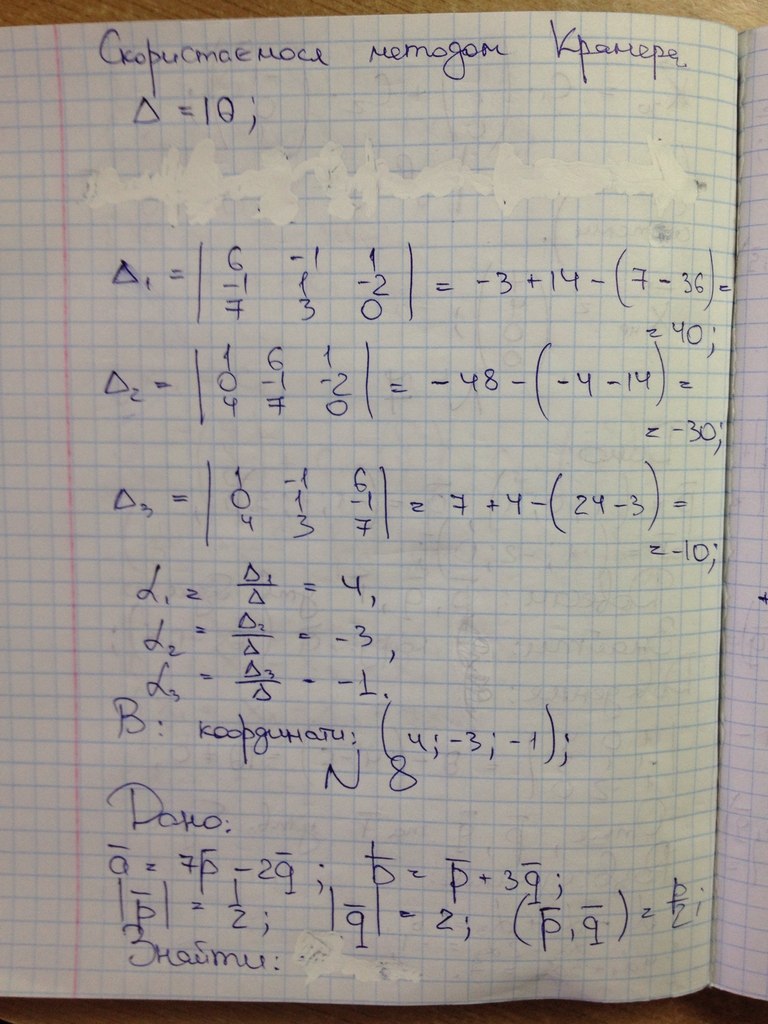 Скористаємося методом Крамера
Δ = 10;
Δ₁ = | 6 -1 1 | = -3 + 14 - (7 - 36) =
| -1 1 -2 |
| 7 3 0 |
= 40;
Δ₂ = | 1 6 1 | = -48 - (-4 - 14) =
| 0 -1 -2 |
| 4 7 0 |
= -30;
Δ₃ = | 1 -1 6 | = 7 + 4 - (24 - 3) =
| 0 1 -1 |
| 4 3 7 |
= -10;
α₁ = Δ₁/Δ = 4,
α₂ = Δ₂/Δ = -3,
α₃ = Δ₃/Δ = -1.
В: координати: (4; -3; -1);
N 8
Дано:
a̅ = 7p̅ - 2q̅; b̅ = p̅ + 3q̅;
|p̅| = 1/2; |q̅| = 2; (p̅, q̅) = p/2;
Знайти: